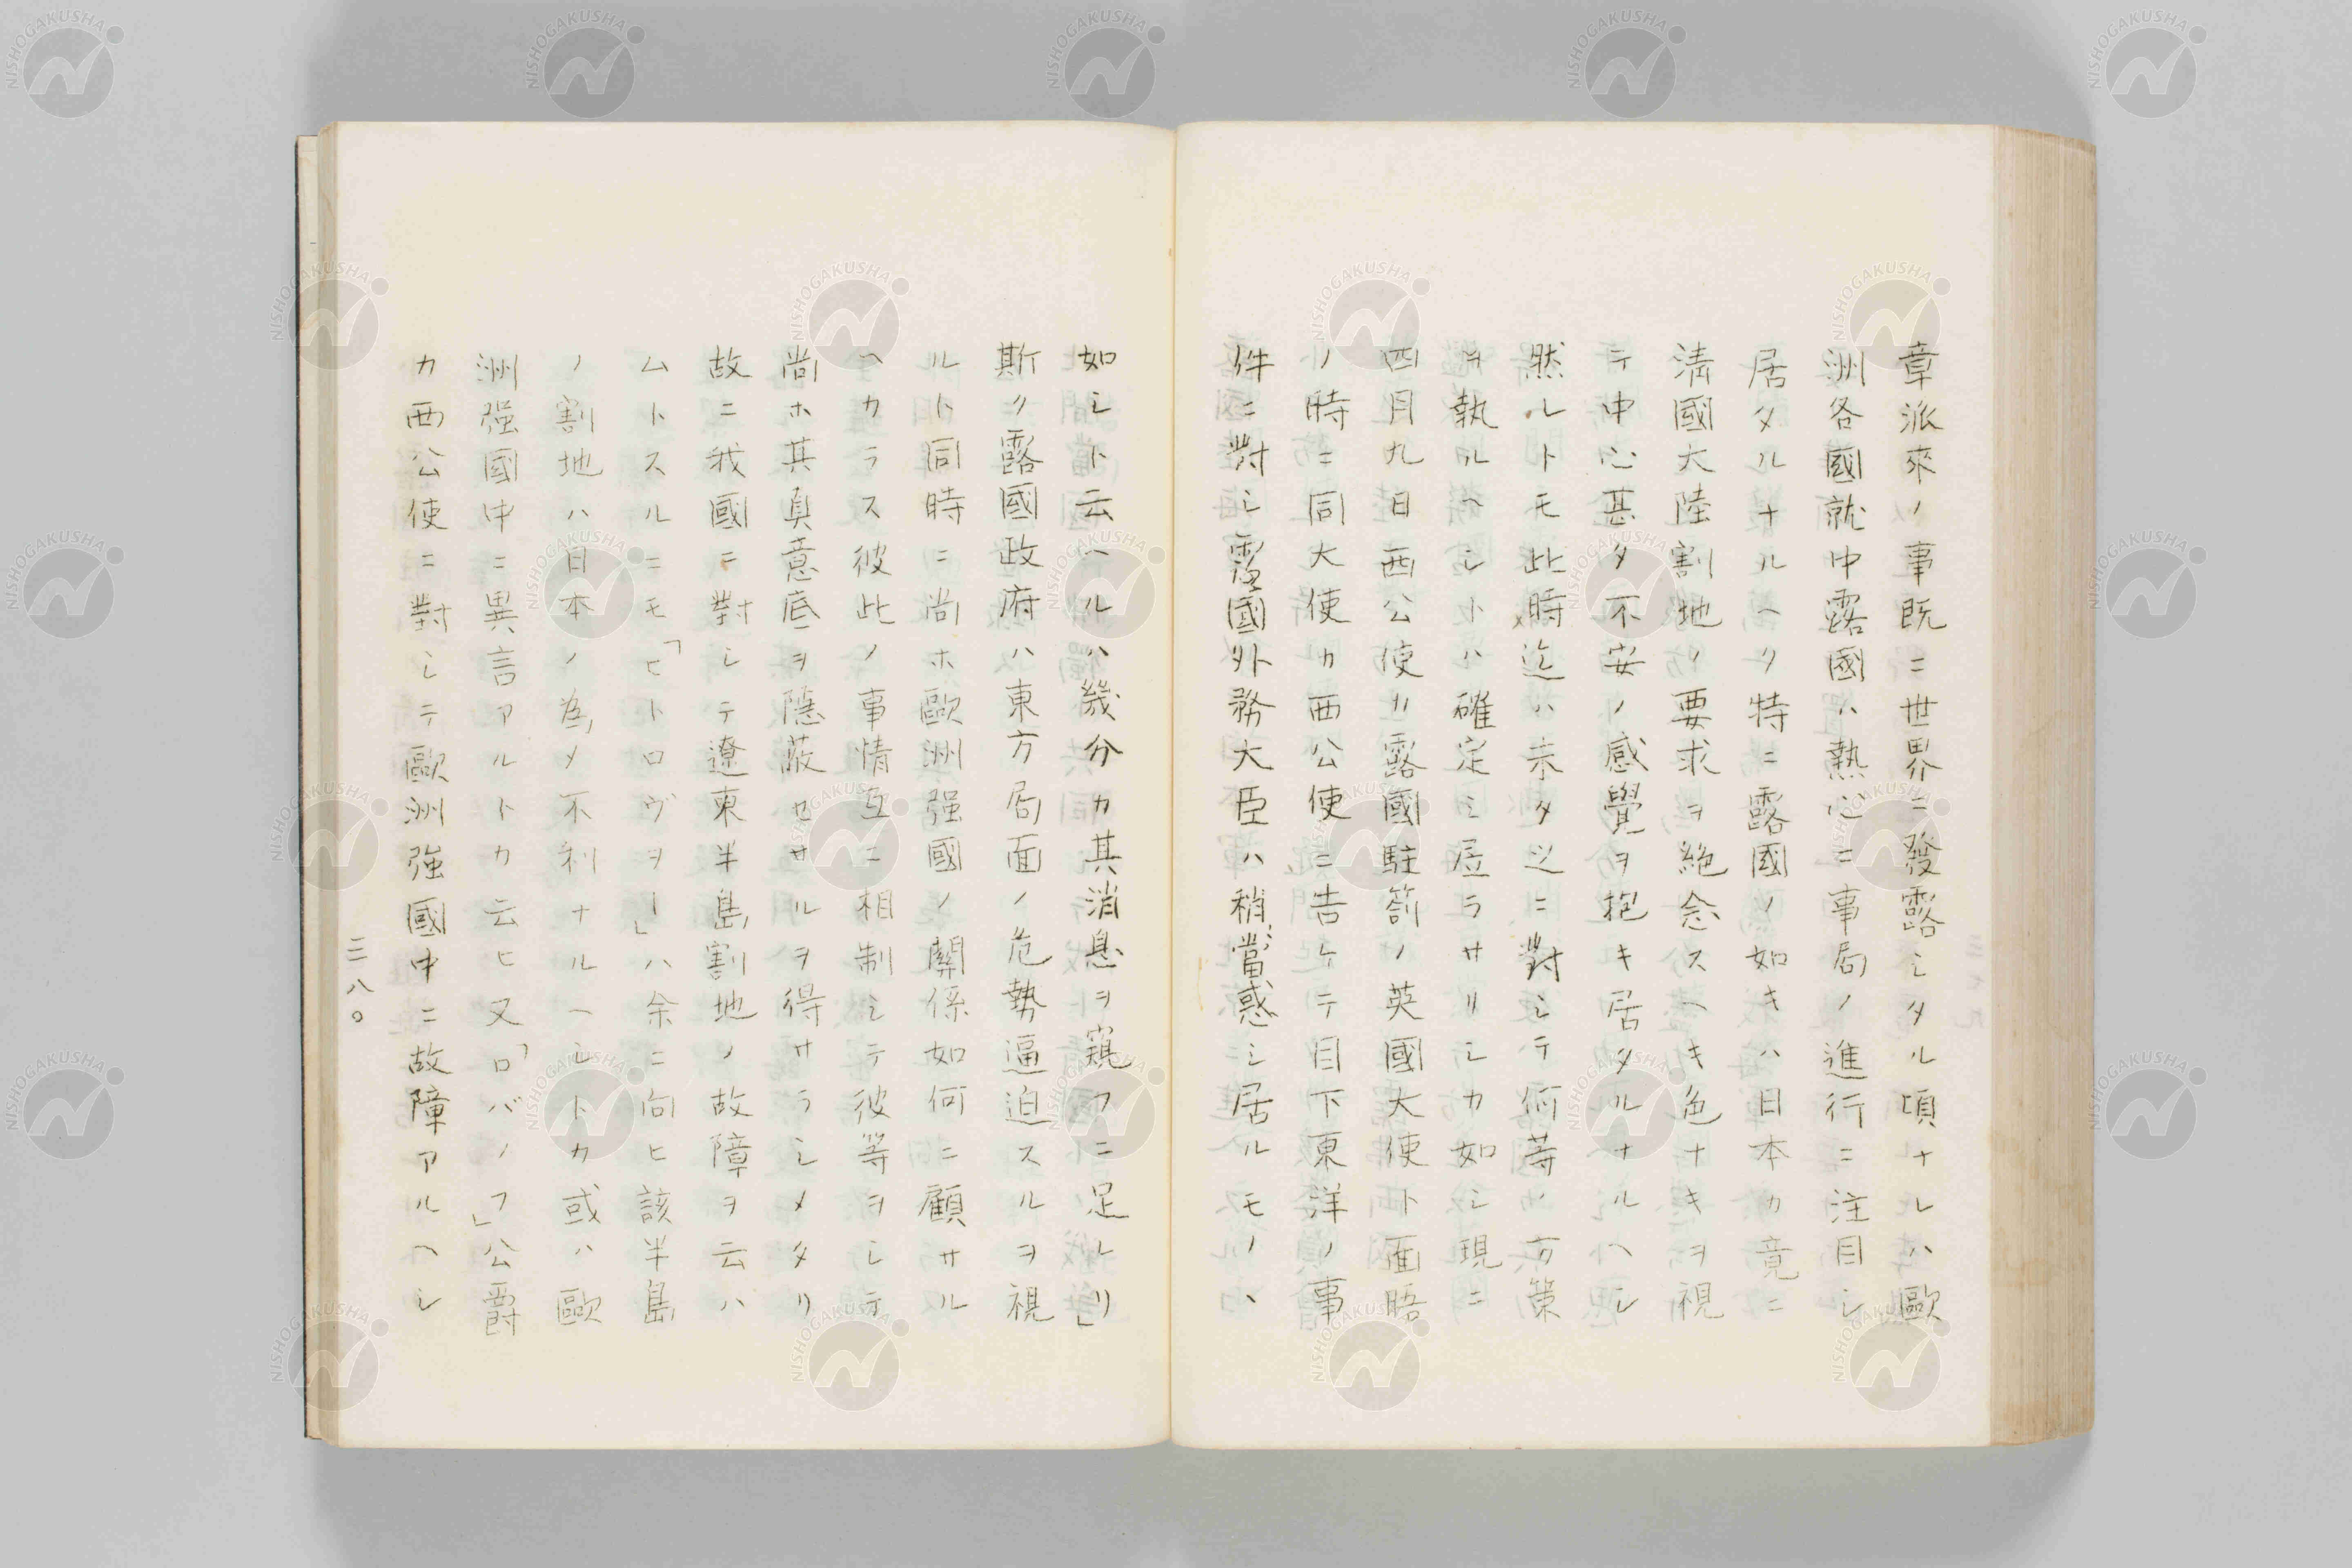 章派來ノ事既ニ世界ニ發露シタル頃ナレハ歐
洲各國就中露國ハ熱心ニ事局ノ進行ニ注目シ
居タルナルヘク特ニ露國ノ如キハ日本カ竟ニ
淸國大陸割地ノ要求ヲ絶念スヘキ色ナキヲ視
テ中心甚タ不安ノ感覺ヲ抱キ居タルナルヘシ
然ルトモ此時迄ハ未タ之ニ對シテ何等ノ方策
ヲ執ルヘシトハ確定シ居ラサリシカ如シ現ニ
四月九日西公使カ露國駐箚ノ英國大使ト面晤
ノ時ニ同大使カ西公使ニ告ケテ目下東洋ノ事
件ニ對シ露國外務大臣ハ稍當惑シ居ルモノヽ
如シト云ヘルハ幾分カ其消息ヲ窺フニ足レリ」
斯ク露國政府ハ東方局面ノ危勢逼迫スルヲ視
ルト同時ニ尚ホ歐洲强國ノ關係如何ニ顧サル
ヘカラス彼此ノ事情互ニ相制シテ彼等ヲシテ
尚ホ其眞意底ヲ隱蔽セサルヲ得サラシメタリ
故ニ我國ニ對シテ遼東半島割地ノ故障ヲ云ハ
ムトスルニモ「ヒトロヴヲー」ハ余ニ向ヒ該半島
ノ割地ハ日本ノ為メ不利ナルヘシトカ或ハ歐
洲强國中ニ異言アルトカ云ヒ又「ロバノフ」公爵
カ西公使ニ對シテ歐洲强國中ニ故障アルヘシ
三八〇
NISHOGAKUSHA